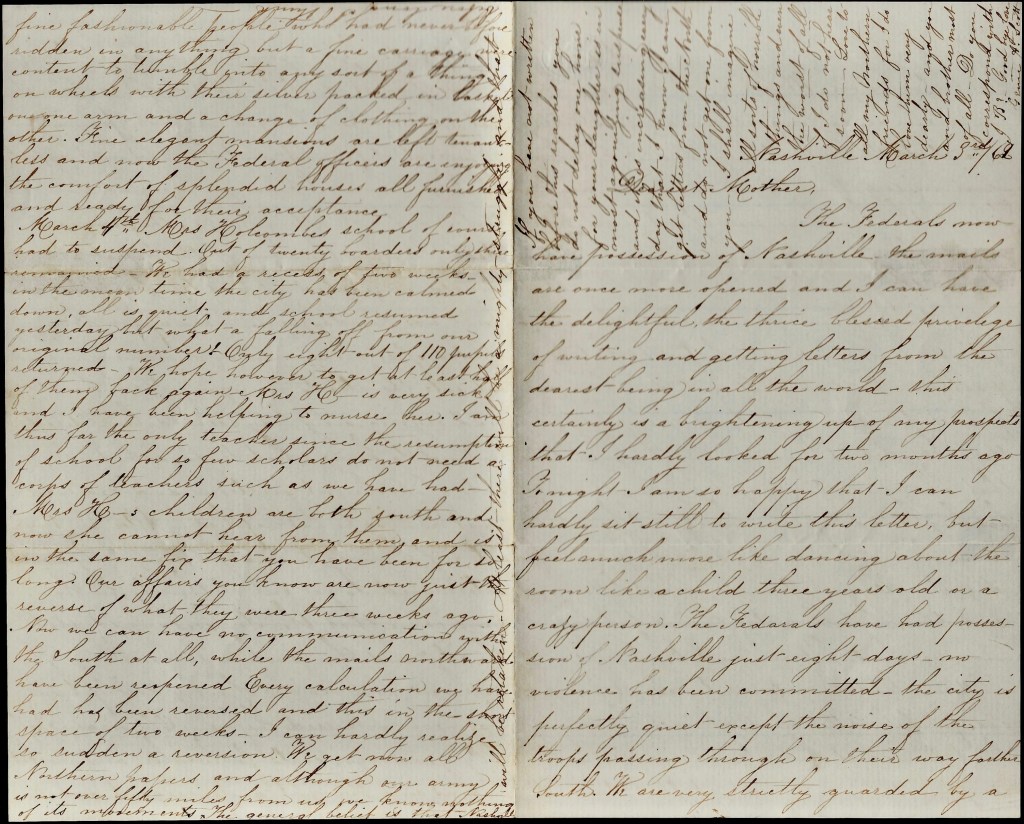 Nashville March 3rd/62
Dearest Mother,
The Federals now
have possession of Nashville the mails
are once more opened and I can have
the delightful, the thrice blessed privilege
of writing and getting letters from the
dearest being in all the world – this
certainly is a brightening up of my prospects
that I hardly looked for two months ago
Tonight I am so happy that I can
hardly sit still to write this letter, but
feel much more like dancing about the
room like a child three years old or a
crazy person. The Fedarals have had posses-
sion of Nashville just eight days – no
violence has been committed – the city is
perfectly quiet except the noise of the
troops passing through on their way farther
South. We are very strictly guarded by a
fine fashionable people who had never
ridden in anything but a fine carriage were
content to tumble into any sort of a thing
on wheels with their silver packed in baskets
on one arm and a change of clothing on the
other. Fine elegant mansions are left tenant
less and now the Federal officers are enjoying
the comfort of splendid houses all furnished
and ready for their acceptance
March 4th Mrs Holcombes school of course
had to suspend. Out of twenty boarders only
remained – We had a recess of two weeks
in the mean time the city has been calmed
down, all is quiet, and school resumed
yesterday but what a falling off from our
original number! Only eight out of 110 pupils
returned – We hope however to get at least
of them back again Mrs H– is very sick
and I have been helping to nurse her. I am
thus far the only teacher since the resumption
of school for so few scholars do not need a
corps of teachers such as we have had –
Mrs H–s children are both south and
now she cannot hear from them and is
in the same fix that you have been for so
long. Our affairs you know are now just the
reverse of what they were three weeks ago.
Now we can have no communication with
the South at all, while the mails northward
have been reopened Every calculation we have
had has been reversed and this in the short
space of two weeks – I can hardly realize
so sudden a reversion. We get now all
Northern papers and although our army
is not over fifty miles from us we know nothing
of its movements. The general belief is that Nashville
will be retaken – At least there will be a mighty struggle
If you have not written
before this reaches you
do not delay one moment
for your daughter is in
most agonizing suspense
and its increasing every
day that I know I can
get letters from the North
and do not get one from
you. I shall imagine
all sorts of terrible
things and even
the worst of all
if I do not hear
from you soon
All my brothers
dearly and you
and brothers most
of all – Do you
correspond with